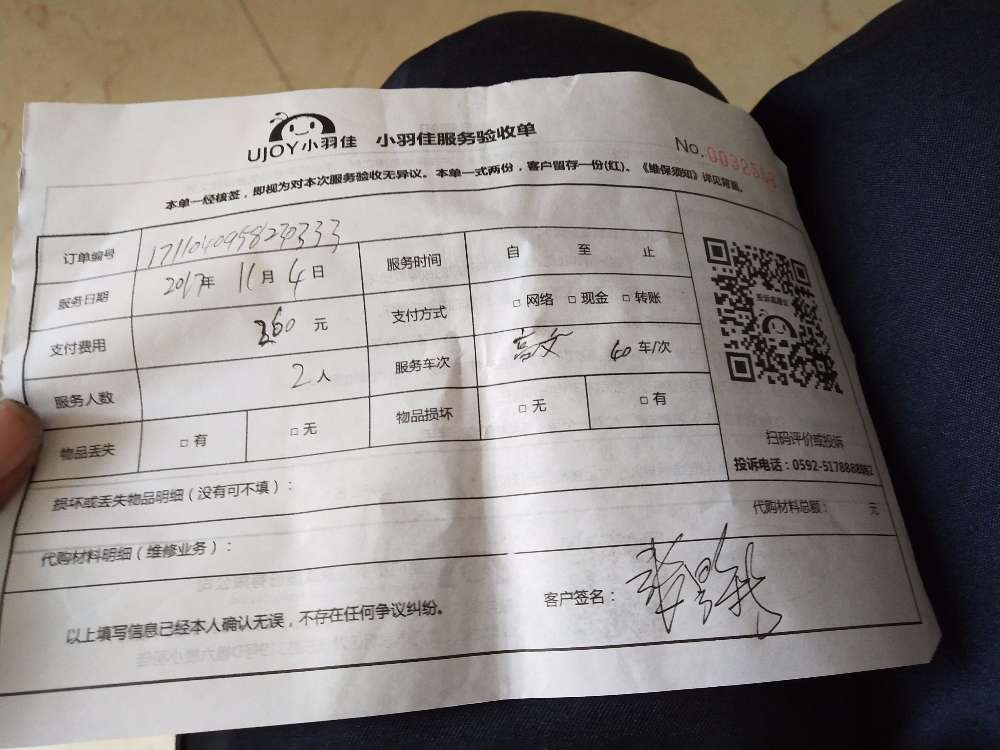 UJOY小羽佳 小羽佳服务验收单
No.
本单一经核签，即视为对本次服务验收无异议。本单一式两份，客户留存一份(红)。《维保须知》详见背面。
订单编号
服务日期 2017年 11月 4日 服务时间 自 至 止
支付费用 360 元 支付方式 □ 网络 □ 现金 □ 转账
服务人数 2人 服务车次 40 车/次
物品丢失 □ 有 □ 无 物品损坏 □ 无 □ 有
扫码评价或投诉
投诉电话：0592-5178888
损坏或丢失物品明细（没有可不填）：
代购材料明细（维修业务）： 代购材料总额： 元
以上填写信息已经本人确认无误，不存在任何争议纠纷。 客户签名：